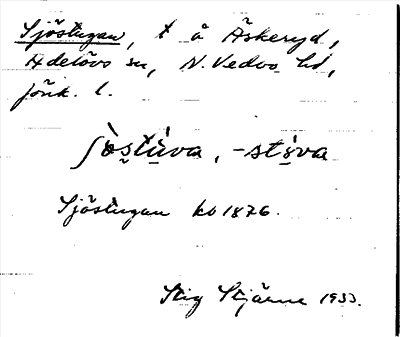 Sjöstugan, t å Äskeryd,
Adelövs sn, N. Vedbo hd,
Jönk. l.
-stùva
Sjöstugan kb 1876.
Stig Stjärne 1933.